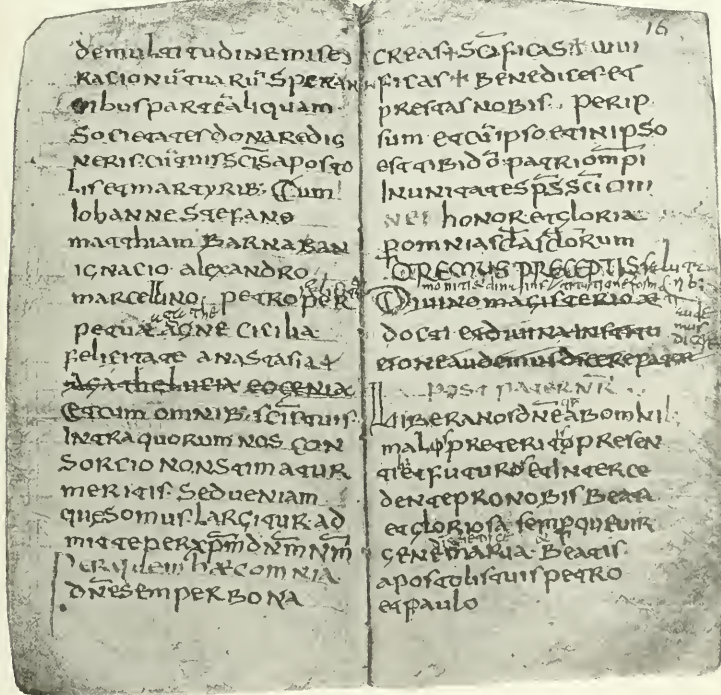 demultitudinemise
racionū tuarū speran
tibus parteᷓ aliquam
societates donaredig
neris. cū tuis s̄c̄īs aposto
lis et martyrib: Cum
Iohanne Stefano
matthiam Barnaban
ignacio alexandro
marcellino petro per
petua agne cicilia
felicitate anastasia
agathe lucia eogenia
et cum omnib. s̄c̄ī tuis
Intra quorum nos con
sorcio non stimatur
meritis. Sed veniam
quesomus. largitur ad
mitte per x̄p̄m d̄n̄m n̄m̄
Per quem hæc omnia
d̄n̄e semper bona
16
creas + s̄c̄īficas + uiui
ficas + Benedices et
prestas nobis. perip
sum et cū ipso et in ipso
est tibi d̄ō patri om̄pi
In unitates s̄p̄s s̄c̄ī om
nes honor et gloria
p̄ omnia s̄c̄l̄a s̄c̄l̄orum
Oremus preceptis
Divino magisterio
docti et divina institu
tione audemus dicere pater
post paternr
Libera nos d̄n̄e ab omni
malo preterito presen
ti et futuro et Interce
dente pro nobis Beata
et gloriosa semp que vir
gene maria Beatis
apostolis tuis petro
et paulo